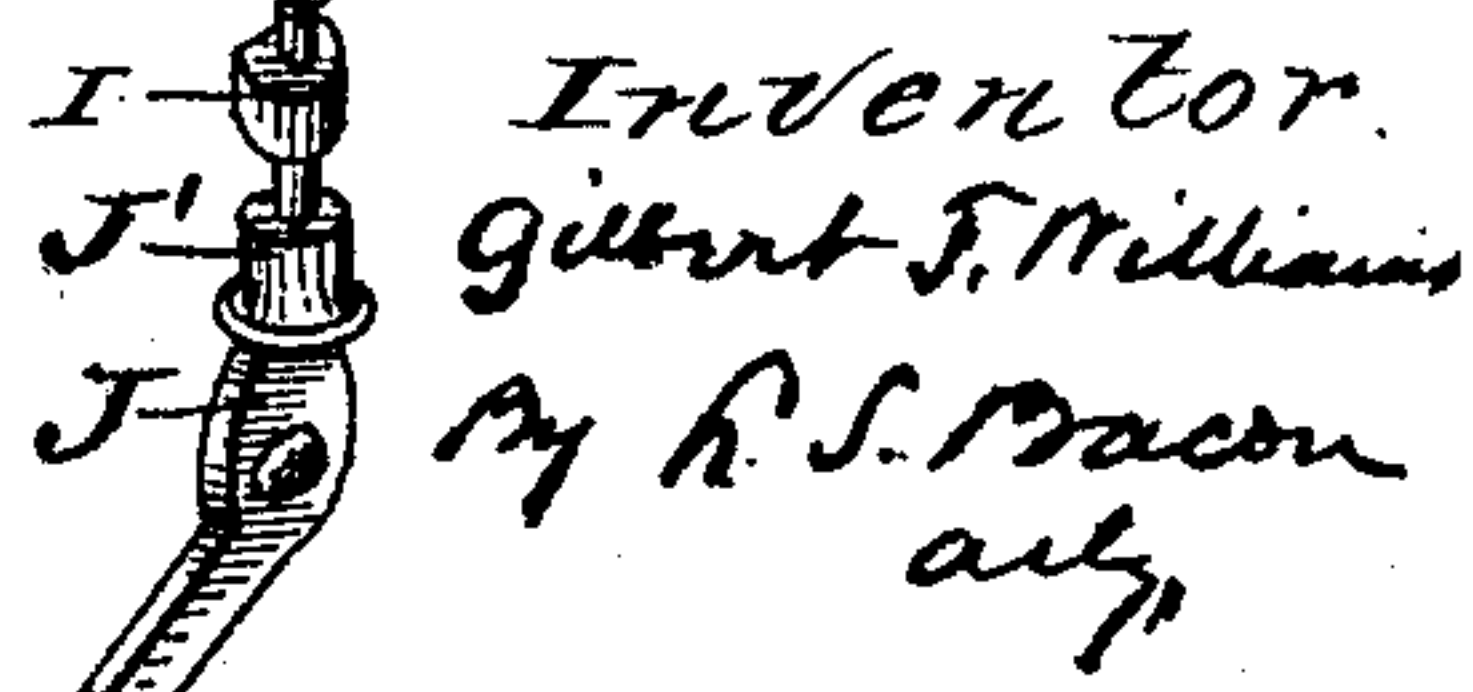 I
Inventor.
J'
Gilbert F. Williams
J
By L. S. Bacon
atty,